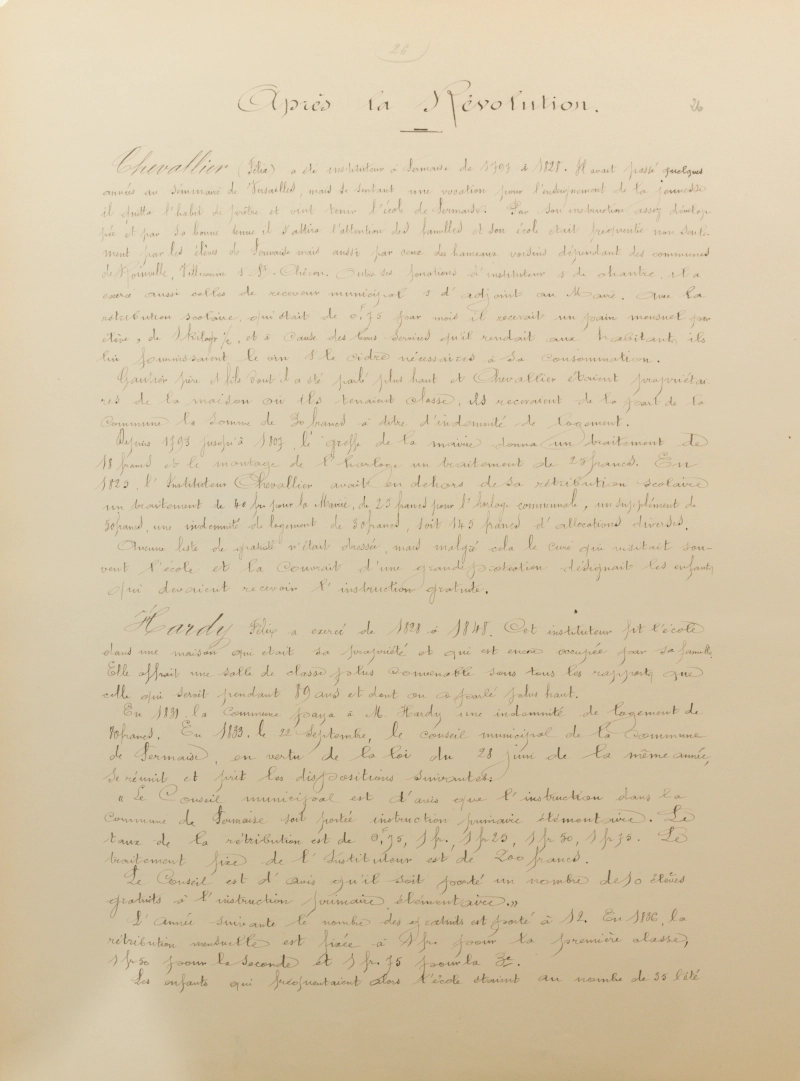 26
Après la Révolution.
26
Chevallier (Félix) a été instituteur à Sermaise de 1793 à 1828. Il avait passé quelques
années au séminaire de Versailles, mais se sentant une vocation pour l'enseignement de la jeunesse
il quitta l'habit de prêtre et vint tenir l'école de Sermaise. Par son instruction assez dévelop-
pée et par sa bonne tenue il s'attira l'attention des familles et son école était fréquentée non seule-
ment par les élèves de Sermaise mais aussi par ceux du hameaux voisins dépendant des communes
de Roinville, Villeconin & St. Chéron. Outre ses fonctions d'instituteur & de chantre, il a
exercé aussi celles de receveur municipal & d'adjoint au Maire. Avec la
rétribution scolaire, qui était de 0f,75 par mois il recevait un pain mensuel par
élève, de 1 kilogr ½, et à cause des bons services qu'il rendait aux habitants, ils
lui fournissaient le vin & le cidre nécessaires à sa consommation.
père et fils dont il a été parlé plus haut et Chevallier étaient propriétai-
res de la maison où ils tenaient classe, ils recevaient de la part de la
Commune la somme de 30 francs à titre d'indemnité de logement.
Depuis 1793 jusqu'à 1807, le greffe de la mairie donna un traitement de
18 francs et le montage de l'horloge un traitement de 25 francs. En
1823, l'Instituteur Chevallier avait en dehors de sa rétribution scolaire
un traitement de 40 fr pour la Mairie, de 25 francs pour l'horloge communale, un supplément de
50 francs, une indemnité de logement de 30 francs, soit 145 francs d'allocations diverses.
Aucune liste de gratuité n'était dressée, mais malgré cela le Curé qui visitait sou-
vent l'école et la couvrait d'une grande protection désignait les enfants
qui devaient recevoir l'instruction gratuite.
Hardy Félix a exercé de 1828 à 1848. Cet instituteur fit l'école
dans une maison qui était sa propriété et qui est encore occupée par sa famille.
Elle offrait une salle de classe plus convenable sous tous les rapports que
celle qui servit pendant 89 ans et dont on a parlé plus haut.
En 1831, la Commune paya à M. Hardy une indemnité de logement de
80 francs. En 1833, le 22 Septembre, le conseil municipal de la Commune
de Sermaise, en vertu de la loi du 28 juin de la même année,
se réunit et prit les dispositions suivantes.
« Le Conseil municipal est d'avis que l'instruction dans la
Commune de Sermaise soit portée instruction primaire élémentaire. Le
taux de la rétribution est de 0f,75, 1 fr., 1 fr 25, 1 fr 50, 1 fr 75. Le
traitement fixe de l'Instituteur est de 200 francs.
Le Conseil est d'avis qu'il soit porté un nombre de 10 élèves
gratuits à l'instruction primaire élémentaire.»
L'année suivante le nombre des gratuits est porté à 12. En 1836, la
rétribution mensuelle est fixée à 1 fr. pour la première classe,
1 fr 50 pour la seconde et 1 fr. 75 pour la 3e.
Les enfants qui fréquentaient alors l'école étaient au nombre de 35 l'été